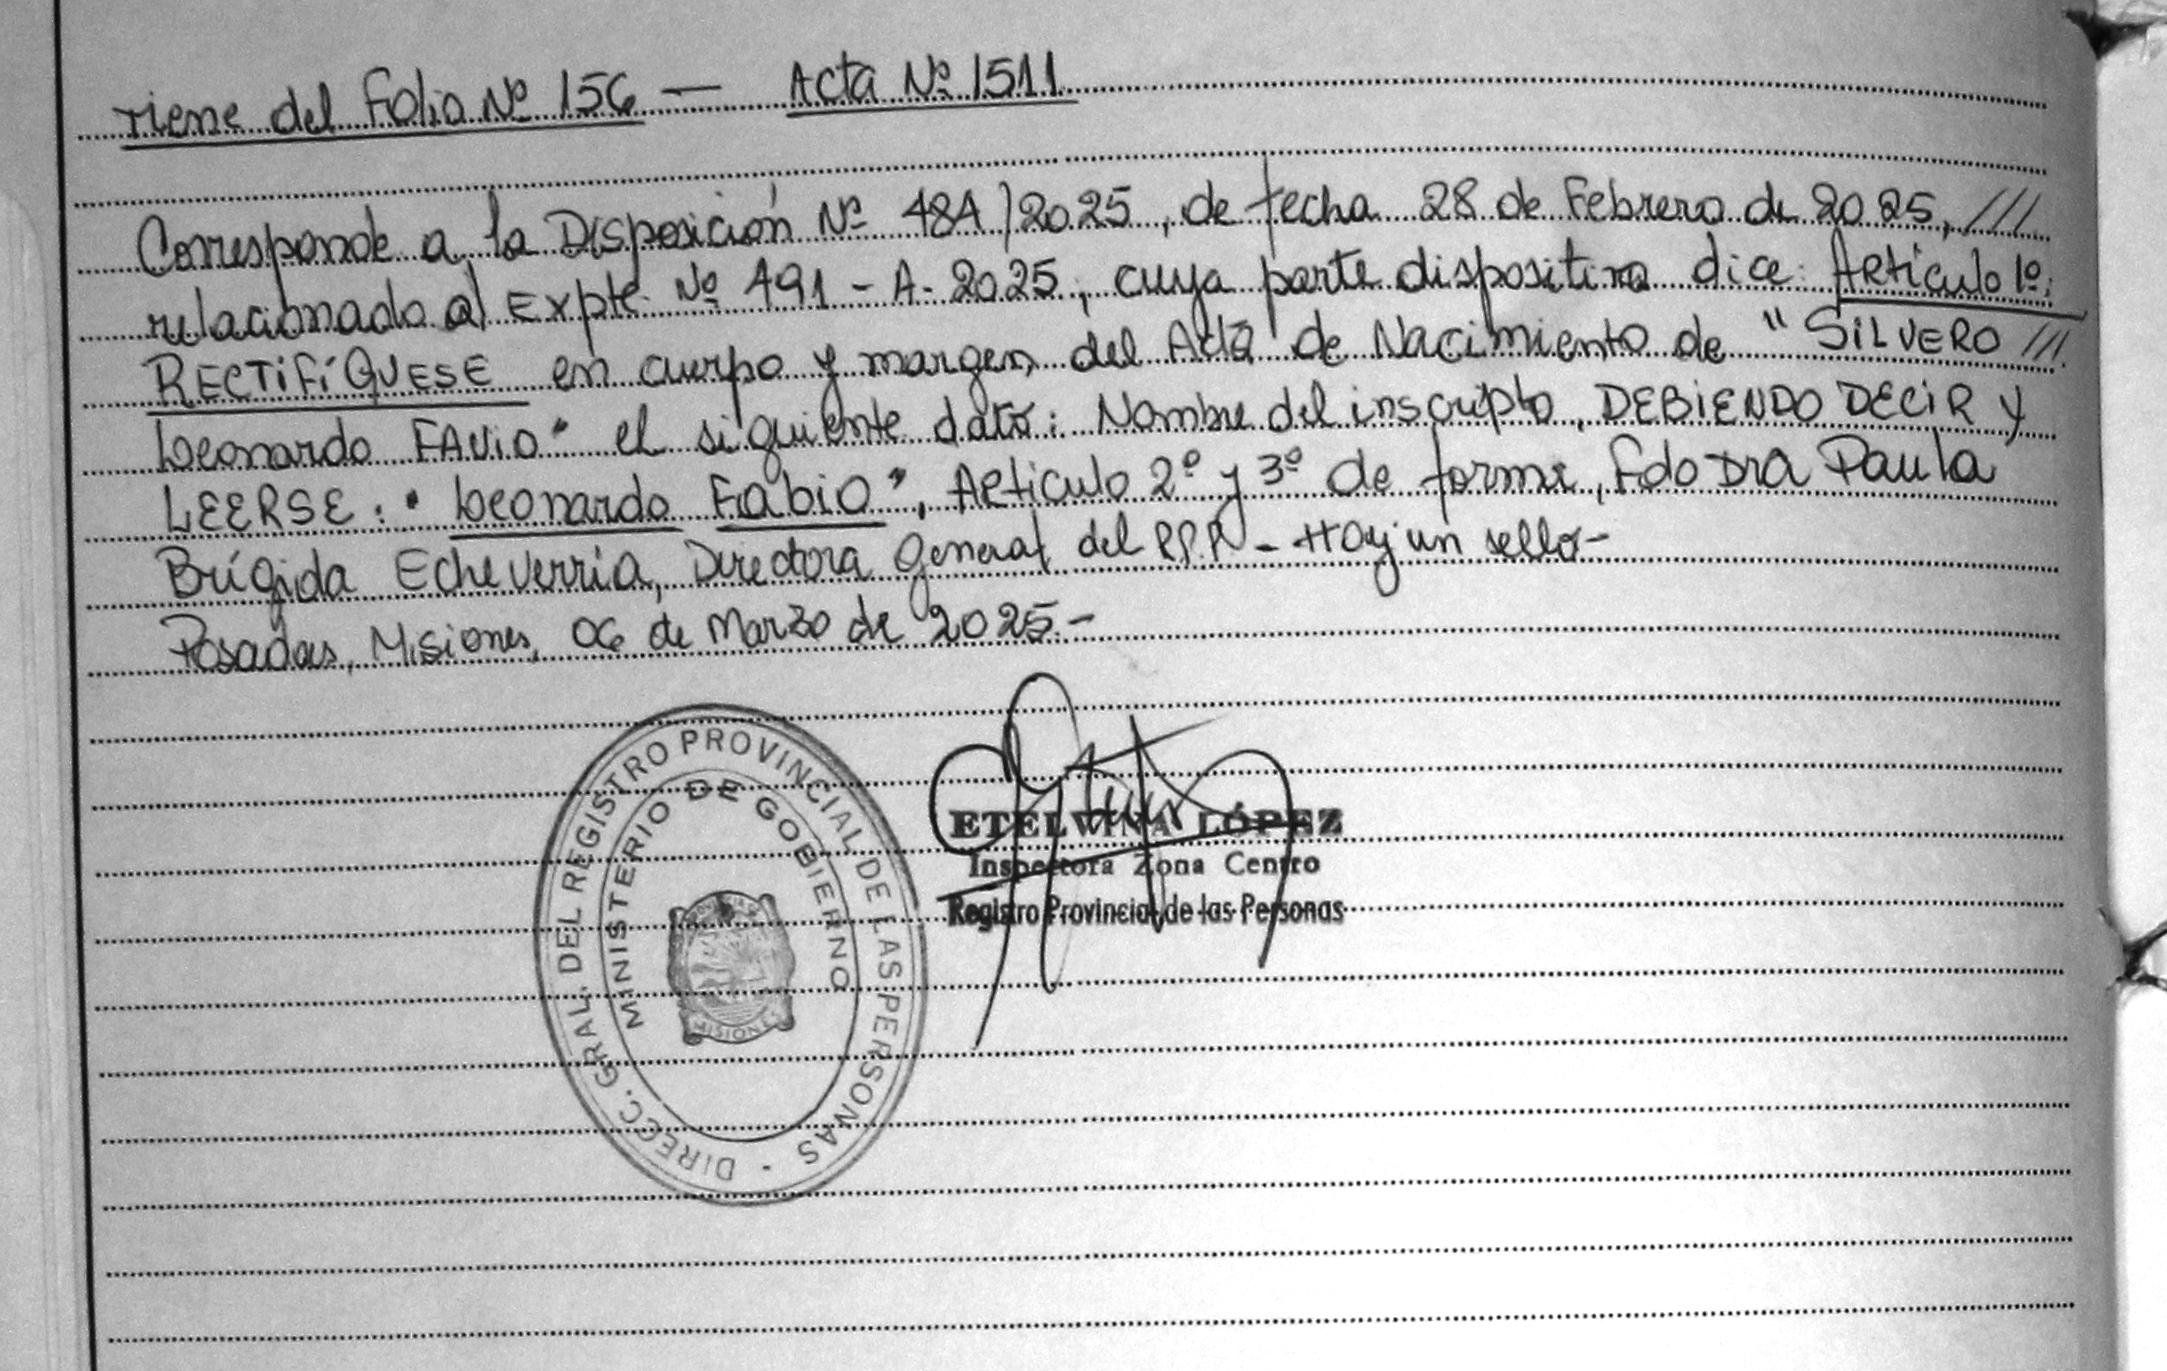 Viene del Folio Nº 156 — Acta Nº 1511
Corresponde a la Disposición Nº 484/2025, de fecha 28 de Febrero de 2025, ///
relacionado al Expte. Nº 491 - A - 2025, cuya parte dispositiva dice: Artículo 1º:
RECTIFÍQUESE en cuerpo y margen del Acta de Nacimiento de "SILVERO ///
Leonardo FAVIO" el siguiente dato: Nombre del inscripto, DEBIENDO DECIR Y
LEERSE: "Leonardo Fabio", Artículo 2º y 3º de forma, Fdo Dra Paula
Brígida Echeverría, Directora General del R.P.P. - Hay un sello -
Posadas, Misiones, 06 de Marzo de 2025.-
DIRECC. GRAL. DEL REGISTRO PROVINCIAL DE LAS PERSONAS
MINISTERIO DE GOBIERNO
MISIONES
ETELVINA LÓPEZ
Inspectora Zona Centro
Registro Provincial de las Personas